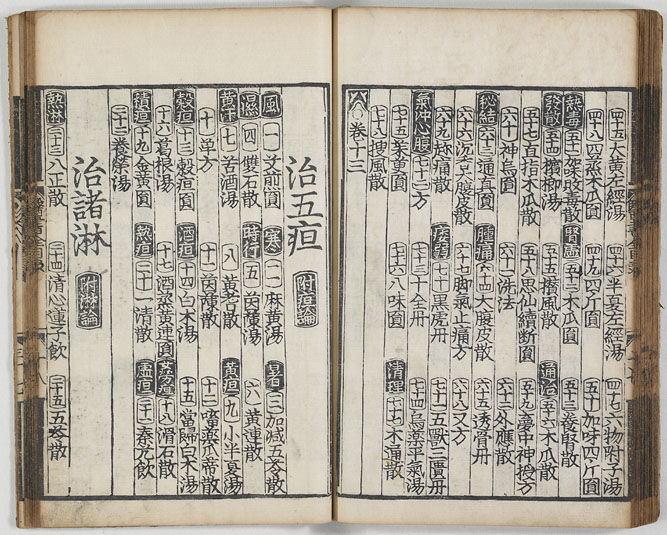 四十五大黄左經湯 四十六半夏左經湯 四十七六物附子湯
四十八四蒸木瓜圓 四十九四斤圓 五十加味四斤圓
熱毒 五十一加味敗毒散 腎虚 五十二木瓜圓 五十三養腎散
發散 五十四檳榔湯 五十五 風散 通治 五十六木瓜散
五十七百指木瓜散 五十八思仙續斷圓 五十九夢中神授方
六十神烏圓 六十一洗法 六十二外應散
秘結 六十三通真圓 腫痛 六十四大腹皮散 六十五透骨丹
六十六沉香大腹皮散 六十七脚氣止痛方 六十八又方
六十九 痛散 痿弱 七十黑虎丹 七十一五獸三匱丹
氣沖心腹 七十二三方 七十三十全丹 七十四烏藥平氣湯
七十五茱萸圓 七十六八味圓 清理 七十七木通散
七十八搜風散
卷十三
治五疸 附疸論
風 一艾煎圓 寒 二麻黄湯 暑 三加減五苓散
濕 四雙石散 時行 五茵蔯湯 六黄連散
黄汗 七苦酒湯 八黄芪散 黄疸 九小半夏湯
十單方 十一茵蔯散 十二㗜藥瓜蒂散
穀疸 十三穀疸圓 酒疸 十四白术湯 十五當歸白术湯
十六葛根湯 十七酒蒸黄連圓 女勞疸 十八滑石散
積疸 十九金黄圓 熱疸 二十一清散 虚疸 二十一秦艽飲
二十二養榮湯
治諸淋 附淋論
熱淋 二十三八正散 二十四清心蓮子飲 二十五五苓散